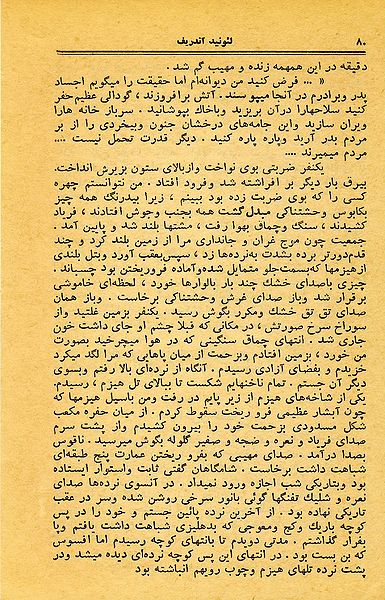 ۸۰ لئونید آندریف
دقیقه در این همهمه زنده و مهیب گم شد.
« ... فرض کنید من دیوانه‌ام اما حقیقت را میگویم اجساد
پدر وبرادرم در آنجا میپوسند. آتش برافروزند، گودالی عظیم حفر
کنید سلاحهارا درآن بریزید وباخاک بپوشانید. سرباز خانه هارا
ویران سازید واین جامه‌های درخشان جنون وبیخردی را از بر
مردم بدر آرید وپاره پاره کنید. دیگر قدرت تحمل نیست ....
مردم میمیرند ....
یکنفر ضربتی بوی نواخت وازبالای ستون بزیرش انداخت.
بیرق بار دیگر بر افراشته شد وفرود افتاد. من نتوانستم چهره
کسی را که بوی ضربت زده بود ببینم، زیرا بیدرنگ همه چیز
بکابوس وحشتناکی مبدل گشت همه بجنب وجوش افتادند، فریاد
کشیدند، سنگ وچماق بهوا رفت، مشتها بلند شد و پایین آمد.
جمعیت چون مرج غران و جانداری مرا از زمین بلند کرد و چند
قدم‌دورتر برده بشدت به‌نرده‌ها زد، سپس‌بعقب آورد وبتل بلندی
ازهیزمها که‌بسمت‌جلو متمایل شده‌وآماده فروریختن بود چسباند.
چیزی باصدای خشک چند بار بالوارها خورد، لحظه‌ای خاموشی
برقرار شد وباز صدای غرش وحشتناکی برخاست. وباز همان
صدای تق تق خشک ومکرر بگوش رسید. یکنفر بزمین غلتید واز
سوراخ سرخ صورتش، در مکانی که قبلا چشم او جای داشت خون
جاری شد. انتهای چماق سنگینی که در هوا میچرخید بصورت
من خورد، بزمین افتادم وبزحمت از میان پاهایی که مرا لگد میکرد
خزیدم و بفضای آزادی رسیدم. آنگاه از نرده‌ای بالا رفتم وبسوی
دیگر آن جستم. تمام ناخنهایم شکست تا ببالای تل هیزم، رسیدم.
یکی از شاخه‌های هیزم از زیر پایم در رفت ومن باسیل هیزمها که
چون آبشار عظیمی فرو ریخت سقوط کردم. از میان حفره مکعب
شکل مسدودی بزحمت خود را بیرون کشیدم واز پشت سرم
صدای فریاد و نعره و ضجه و صفیر گلوله بگوش میرسید. ناقوس
بصدا درآمد. صدای مهیبی که بفرو ریختن عمارت پنج طبقه‌ای
شباهت داشت برخاست. شامگاهان گفتی ثابت واستوار ایستاده
بود وبتاریکی شب اجازه ورود نمیداد. در آنسوی نرده‌ها صدای
نعره و شلیک تفنگها گوئی بانور سرخی روشن شده وسر در عقب
تاریکی نهاده بود. از آخرین نرده پائین جستم و خود را در پس
کوچه باریک وکج ومعوجی که بدهلیزی شباهت داشت یافتم وپا
بفرار گذاشتم. مدتی دویدم تا بانتهای کوچه رسیدم اما افسوس
که بن بست بود. در انتهای این پس کوچه نرده‌ای دیده میشد ودر
پشت نرده تلهای هیزم وچوب رویهم انباشته بود